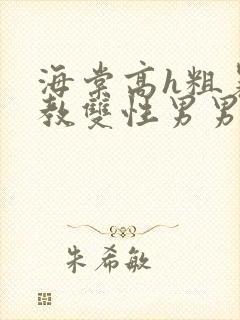 海棠高h粗暴
教雙性男男
朱希敏